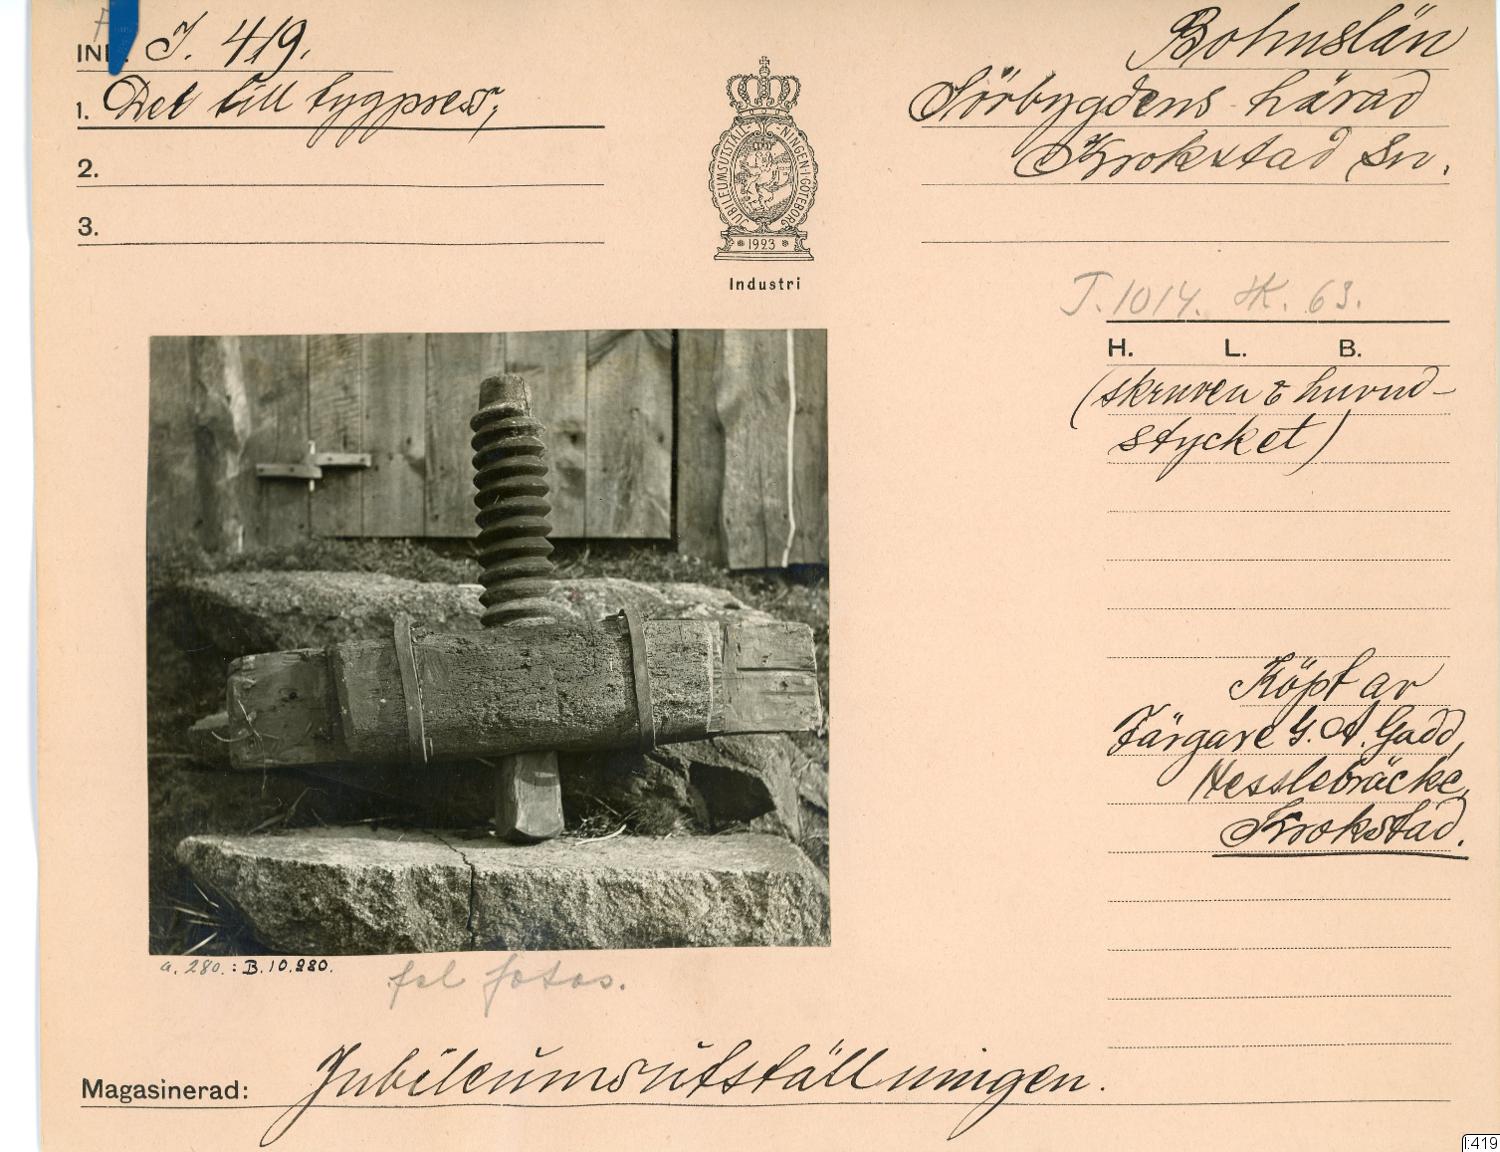 INK. I. 419.
1. Del till tygpress,
2.
3.
JUBILEUMSUTSTÄLLNINGEN I GÖTEBORG
1923
Industri
Bohuslän
Sörbygdens härad
Krokstad Sn.
I.1014. 63.
H. L. B.
(skruven & huvud-
stycket)
Köpt av
Färgare G. A. Gadd,
Hesslebräcke,
Krokstad.
a. 280. : B.10.280.
fel fotos.
Magasinerad: Jubileumsutställningen.
I:419